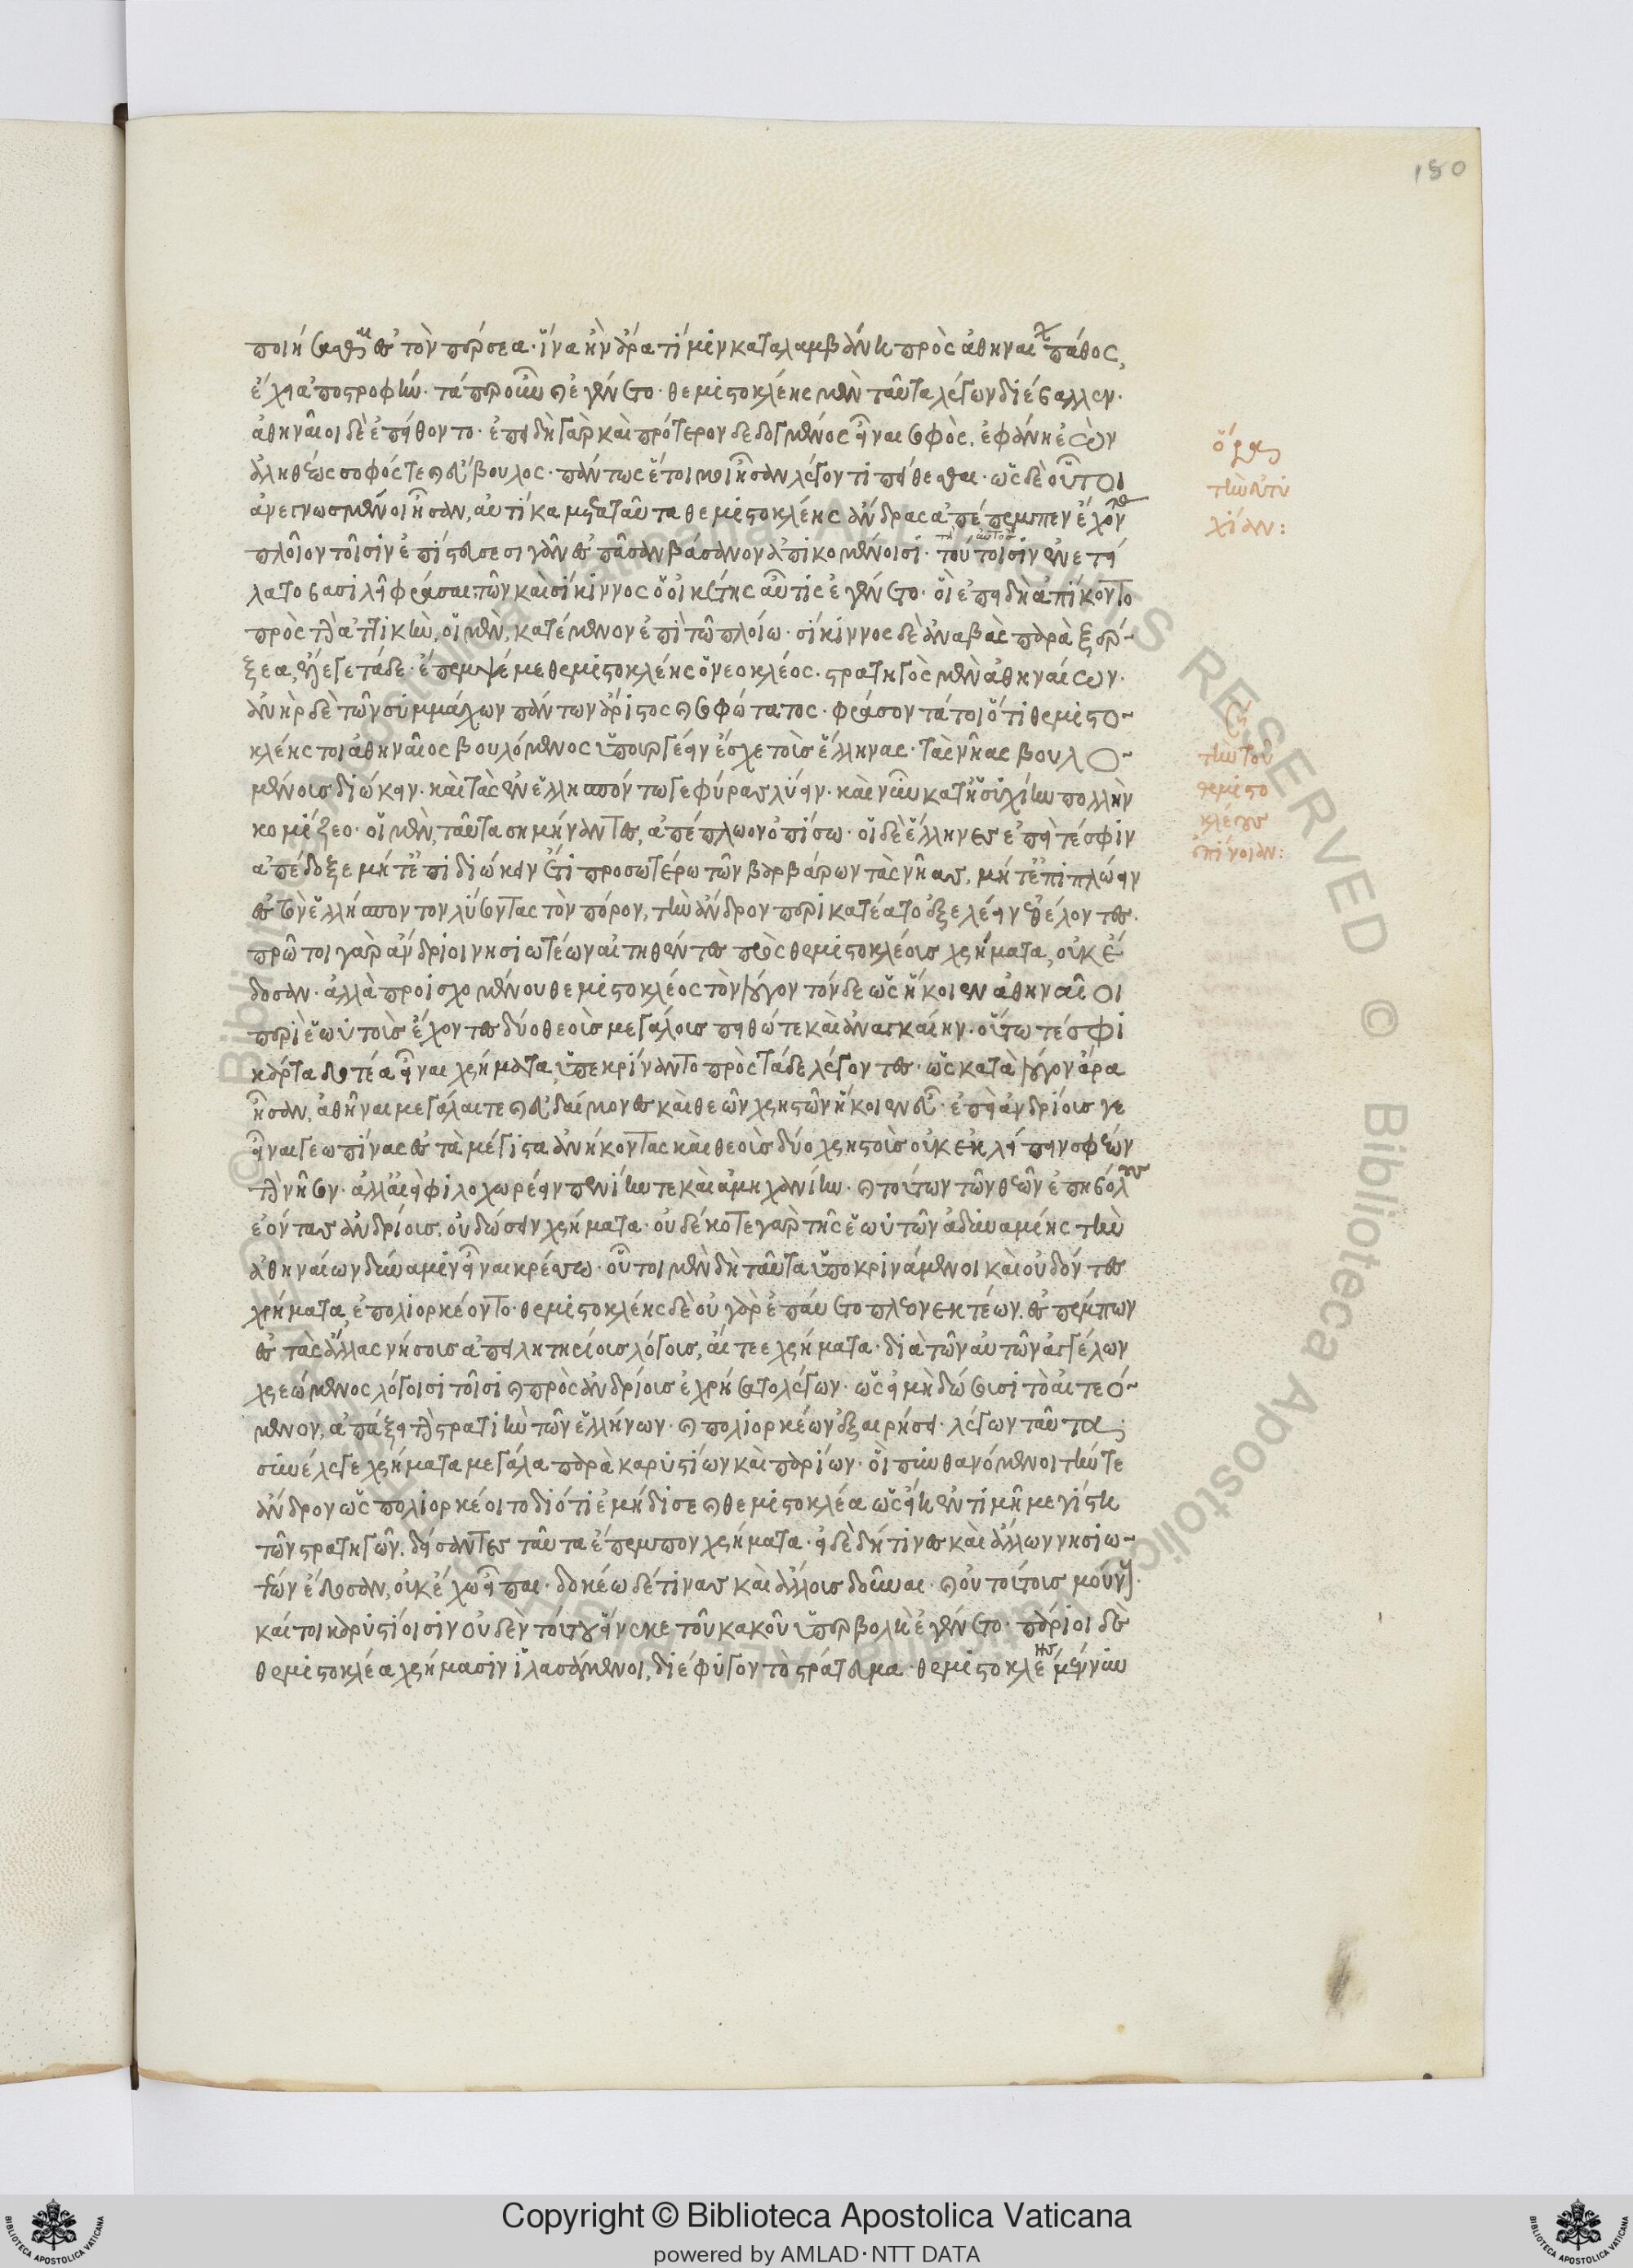 150
ποιήσεσθαι ἐς τὸν πέρσεα· ἵνα ἢν ἄρα τί μιν καταλαμβάνη πρὸς ἀθηναίων πάθος,
ἔχη ἀποστροφήν· τάπερ ὦν καὶ ἐγένετο· θεμιστοκλέης μὲν ταῦτα λέγων διέβαλλεν·
ἀθηναῖοι δὲ ἐπείθοντο· ἐπειδὴ γὰρ καὶ πρότερον δεδογμένος εἶναι σοφὸς, ἐφάνη ἐὼν
ἀληθέως σοφός τε καὶ εὔβουλος· πάντως ἕτοιμοι ἦσαν λέγοντι πείθεσθαι· ὡς δὲ οὗτοι
ἀνεγνωσμένοι ἦσαν, αὐτίκα μετὰ ταῦτα θεμιστοκλέης ἄνδρας ἀπέπεμπεν ἔχοντας
πλοῖον τοῖσιν ἐπίστευσε σιγᾶν ἐς πᾶσαν βάσανον ἀπικομένοισι· τούτοισιν ἐνετεί
λατο βασιλεῖ φράσαι· τῶν καὶ σίκιννος ὁ οἰκέτης αὖτις ἐγένετο· οἳ ἐπειδὴ ἀπίκοντο
πρὸς τὴν ἀττικὴν, οἱ μὲν, κατέμενον ἐπὶ τῶ πλοίω· σίκιννος δὲ ἀναβὰς παρὰ ξέρ-
ξεα, ἔλεγε τάδε· ἔπεμψέ με θεμιστοκλέης ὁ νεοκλέος· στρατηγὸς μὲν ἀθηναίων·
ἀνὴρ δὲ τῶν συμμάχων πάντων ἄριστος καὶ σοφώτατος· φράσοντά τοι ὅτι θεμιστο-
κλέης τοι ἀθηναῖος βουλόμενος ὑπουργέειν ἔσχε τοὺς ἕλληνας· τὰς νῆας βουλο-
μένους διώκειν· καὶ τὰς ἐν ἑλλησπόντω γεφύρας λύειν· καὶ νῦν κατ' ἡσυχίην πολλὴν
κομίζεο· οἱ μὲν, ταῦτα σημήναντες, ἀπέπλωον ὀπίσω· οἱ δὲ ἕλληνες ἐπεί τέ σφιν
ἀπέδοξε μήτ' ἐπιδιώκειν ἔτι προσωτέρω τῶν βαρβάρων τὰς νῆας, μήτ' ἐπιπλώειν
ἐς τὸν ἑλλήσποντον λύσοντας τὸν πόρον, τὴν ἄνδρον περικατέατο ἐξελέειν ἐθέλοντες.
πρῶτοι γὰρ ἄνδριοι νησιωτέων αἰτηθέντες πρὸς θεμιστοκλέους χρήματα, οὐκ ἔ
δοσαν· ἀλλὰ προϊσχομένου θεμιστοκλέος τὸν λόγον τόνδε ὡς ἥκοιεν ἀθηναῖοι
περὶ ἑωυτοὺς ἔχοντες δύο θεοὺς μεγάλους πειθώ τε καὶ ἀναγκαίην· οὕτω τέ σφι
κάρτα δοτέα εἶναι χρήματα, ὑπεκρίναντο πρὸς τάδε λέγοντες· ὡς κατὰ λόγον ἄρα
ἦσαν, ἀθῆναι μεγάλαι τε καὶ εὐδαίμονες καὶ θεῶν χρηστῶν ἥκοιεν εὖ· ἐπεὶ ἀνδρίους γε
εἶναι γεωπίνας ἐς τὰ μέγιστα ἀνήκοντας καὶ θεοὺς δύο χρηστοὺς οὐκ ἐκλείπειν σφέων
τὴν νῆσον· ἀλλ' αἰεὶ φιλοχωρέειν πενίην τε καὶ ἀμηχανίην· καὶ τούτων τῶν θεῶν ἐπηβόλους
ἐόντας ἀνδρίους, οὐ δώσειν χρήματα· οὐδέκοτε γὰρ τῆς ἑωυτῶν ἀδυναμίης τὴν
ἀθηναίων δύναμιν εἶναι κρέσσω· οὗτοι μὲν δὴ ταῦτα ὑποκρινάμενοι καὶ οὐ δόντες
χρήματα, ἐπολιορκέοντο· θεμιστοκλέης δὲ οὐ γὰρ ἐπαύετο πλεονεκτέων. ἐσπέμπων
ἐς τὰς ἄλλας νήσους ἀπειλητηρίους λόγους, αἴτεε χρήματα· διὰ τῶν αὐτῶν ἀγγέλων
χρεώμενος λόγοισι τοῖσι καὶ πρὸς ἀνδρίους ἐχρήσατο λέγων· ὡς εἰ μὴ δώσουσι τὸ αἰτεό-
μενον, ἀπάξει τὴν στρατιὴν τῶν ἑλλήνων· καὶ πολιορκέων ἐξαιρήσει· λέγων ταῦτα
συνέλεγε χρήματα μεγάλα παρὰ καρυστίων καὶ παρίων· οἳ πυνθανόμενοι τήν τε
ἄνδρον ὡς πολιορκέοιτο διότι ἐμήδισε καὶ θεμιστοκλέα ὡς εἴη ἐν τιμῆ μεγίστη
τῶν στρατηγῶν. δείσαντες ταῦτα ἔπεμπον χρήματα· εἰ δὲ δή τινες καὶ ἄλλων νησιω-
τέων ἔδοσαν, οὐκ ἔχω εἶπαι· δοκέω δέ τινας καὶ ἄλλους δοῦναι· καὶ οὐ τούτους μούνους·
καίτοι καρυστίοισιν οὐδὲν τούτου εἵνεκε τοῦ κακοῦ ὑπερβολὴ ἐγένετο· πάριοι δὲ
θεμιστοκλέα χρήμασιν ἱλασάμενοι, διέφυγον τὸ στράτευμα· θεμιστοκλέης μέν νυν
ὅρα
τὴν εὐτυ
χίαν:
τὴν τοῦ
θεμιστο
κλέους
ἐπίνοιαν:
Copyright © Biblioteca Apostolica Vaticana
powered by AMLAD·NTT DATA